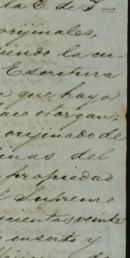 la E. de S
orijinales,
iendo la cu-
Escritura
a que haya
aco otorgan
orijinado de
inas del
propiedad
l Supremo
ocientos veinte
inserto y